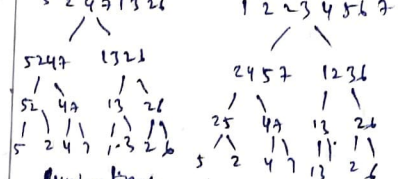 5 2 4 7 1 3 2 6
5247 1326
52 47 13 26
5 2 4 7 1 3 2 6
1 2 2 3 4 5 6 7
2457 1236
25 47 13 26
5 2 4 7 13 2 6